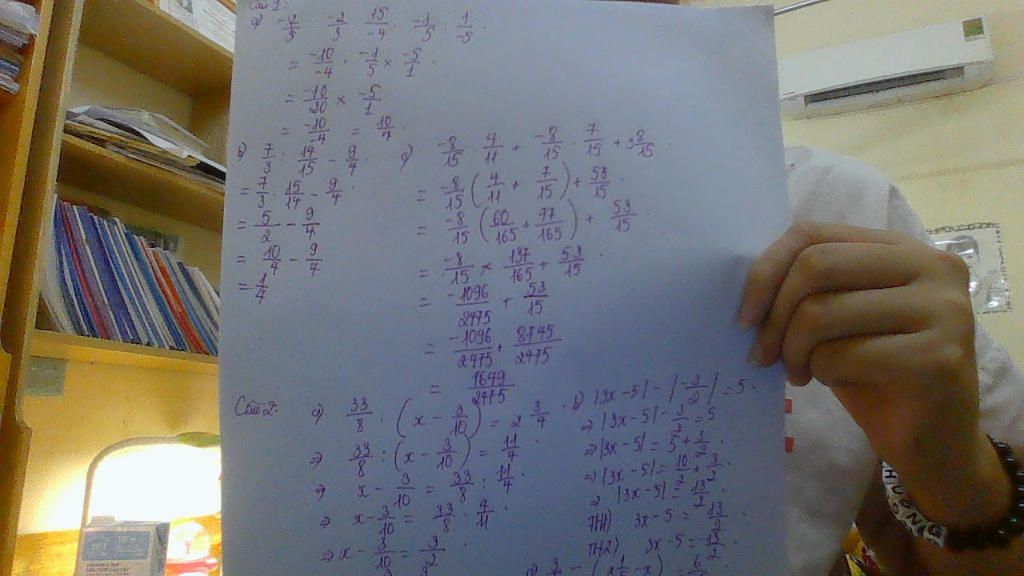 Câu 1:
a) -2/3 · 15/-4 · -1/5 : 1/-5 .
= -10/-4 · -1/5 × -5/1 .
= -10/20 × -5/1
= -10/-4 = 10/4 .
b) 7/3 : 14/15 - 9/4 .
= 7/3 · 15/14 - 9/4 .
= 5/2 - 9/4
= 10/4 - 9/4
= 1/4
c) -8/15 · 4/11 + -8/15 · 7/15 + 3 8/15 .
= -8/15 ( 4/11 + 7/15 ) + 53/15 .
= -8/15 ( 60/165 + 77/165 ) + 53/15 .
= -8/15 × 137/165 + 53/15 .
= -1096/2475 + 53/15
= -1096/2475 + 8745/2475
= 7649/2475
Câu 2: a) 33/8 : ( x - 3/10 ) = 2 3/4 .
⇒ 33/8 : ( x - 3/10 ) = 11/4 .
⇒ x - 3/10 = 33/8 : 11/4 .
⇒ x - 3/10 = 33/8 · 4/11
⇒ x - 3/10 = 3/2
b) |3x - 5| - | -3/2 | = 5 .
⇒ |3x - 5| - 3/2 = 5
⇒ |3x - 5| = 5 + 3/2
⇒ |3x - 5| = 10/2 + 3/2 .
⇒ |3x - 5| = 13/2 .
TH1) 3x - 5 = 13/2
TH2) 3x - 5 = -13/2